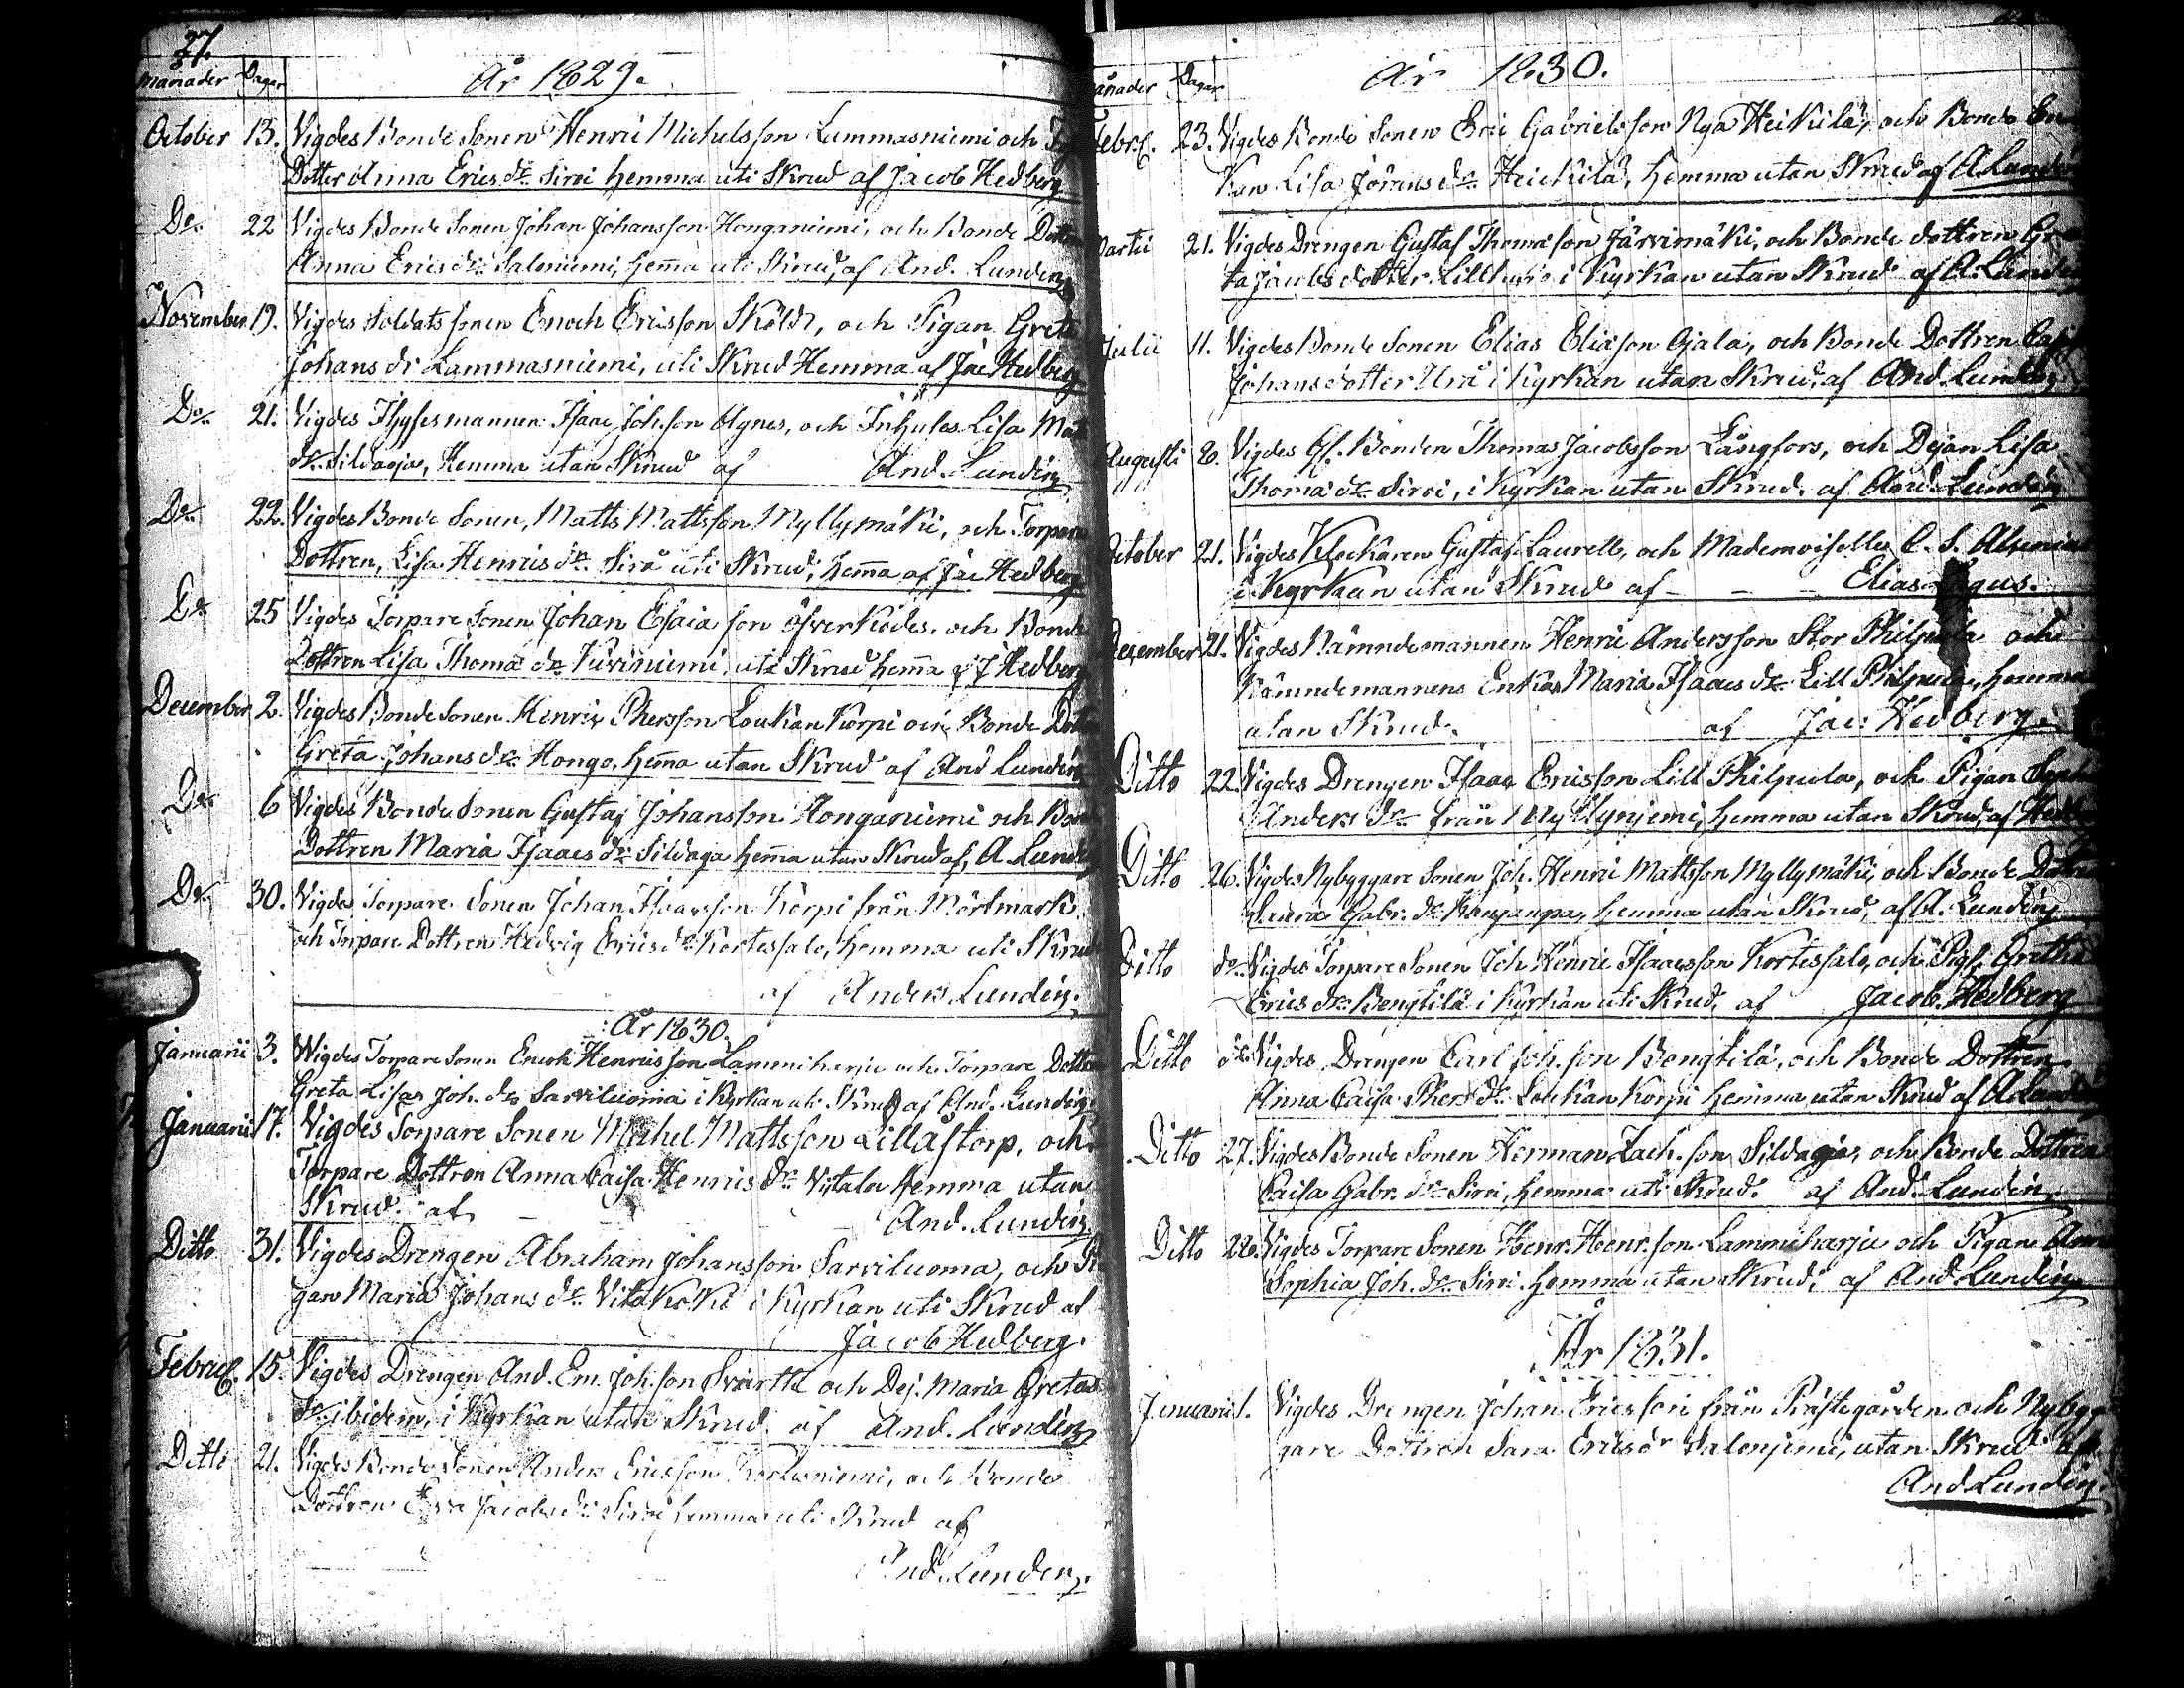 27.
Månader Dagar År 1829.
October 13. Vigdes Bonde Sonen Henric Michelsson Lammasniemi och
Dotter Anna Erics dr Sirvi hemma uti Skrud af Jacob Hedberg
Do 22 Vigdes Bonde Sonen Johan Johansson Honganiemi, och Bonde Dottren
Anna Erics dr Saloniemi, hema uti Skrud, af And. Lundin
November 19. Vigdes Soldats sonen Enoch Ericsson Sköldt, och Pigan Greta
Johans dr Lammasniemi, uti Skrud Hemma af Jac Hedberg
Do 21. Vigdes Hysesmannen Isaac Joh.son Agnes, och Inhyses Lisa
dr Sildaoja, Hemma utan Skrud af And. Lundin
Do 22. Vigdes Bonde Sonen, Matts Mattsson Myllymäki, och Torpare
Dottren, Lisa Henrics dr Sirå uti Skrud, hema af Jac Hedberg
Do 25 Vigdes Torpare Sonen Johan Esaiasson öfverködes. och Bonde
Dottren Lisa Thomæ dr uti Skrud hema af J Hedberg
December 2. Vigdes Bonde Sonen Henric Phersson Loukan Korpi och Bonde
Greta Johans dr Hongo, hema utan Skrud af And Lundin
Do 6 Vigdes Bonde Sonen Gustaf Johansson Honganiemi och
Dottren Maria Isaacs dr Sildaga hema utan Skrud af, A Lundin
Do 30. Vigdes Torpare Sonen Johan Isaacsson Korpi från Mörtmark
och Torpare Dottren Hedvig Erics dr Kortessalo, hemma uti Skrud
af Anders Lundin.
År 1830.
Januarii 3. Wigdes Torpare Sonen Enoch Henricsson Lammiharju och Torpare Dottren
Greta Lisa Joh. dr Sarviluoma i Kyrkan uti Skrud af And. Lundin
Januarii 17. Vigdes Torpare Sonen Michel Mattsson Lillåstorp, och
Torpare Dottren Anna Caisa Henrics dr Vitala Hemma utan
Skrud af And. Lundin
Ditto 31. Vigdes Drengen Abraham Johansson Sarviluoma, och
gan Maria Johans dr Vitakoki i Kyrkan uti Skrud af
Jacob Hedberg.
Febr. 15. Vigdes Drengen And. Em. Joh.son Svartta och Dej. Maria Greta
dr ibidem, i Kyrkan utan Skrud. af And. Lundin
Ditto 21. Vigdes Bonde Sonen Anders Ericsson Kortesniemi, och Bonde
Dottren Eva Jacobs dr Sirvi hemma uti Skrud af
And. Lundin.
ånader Dagar År 1830.
Febr. 23. Vigdes Bonde Sonen Eric Gabrielsson Nya Heikkilä, och Bonde
kan Lisa Jörans dr Heickilä, hemma utan Skrud af A Lundin
Martii 21. Vigdes Drengen Gustaf Thomæson Järvimäki, och Bonde dottren Gre
ta Jacobs dotter i Kyrkan utan Skrud af A. Lundin
Julii 11. Vigdes Bonde Sonen Elias Eliæson Ojala, och Bonde Dottren
Johans dotter Urå i Kyrkan utan Skrud, af And. Lundin
Augusti 8. Vigdes Gl. Bonden Thomas Jacobsson Långfors, och Dejan Lisa
Thomæ dr Sirvi, i Kyrkan utan Skrud. af And. Lundin
October 21. Vigdes Klockaren Gustaf Laurell, och Mademoiselle C. S.
i Kyrkan utan Skrud af Elias Lagus.
December 21. Vigdes Nämndemannen Henric Andersson Stor Philpula och
Nämndemannens Enka Maria Isaacs dr Lill Philpula, hemma
utan Skrud. af Jac: Hedberg.
Ditto 22. Vigdes Drengen Isaac Ericsson Lill Philpula, och Pigan
Anders dr från hemma utan Skrud, af
Ditto 26. Vigdes Nybyggare Sonen Joh. Henric Mattsson Myllymäki, och Bonde Dottren
Gabr. dr Kangaspä, hemma utan Skrud, af A. Lundin
Ditto do. Vigdes Torpare Sonen Joh Henric Isaacsson Kortessalo, och Pig. Greta
Erics dr Bengtilä i Kyrkan uti Skrud, af Jacob Hedberg
Ditto do Vigdes Drengen Carl Joh. son Bengtilä, och Bonde Dottren
Anna Caisa Phers dr Loukan Korpi hemma utan Skrud af A Lundin
Ditto 27. Vigdes Bonde Sonen Herman Zach. son Sildaoja, och Bonde Dottren
Caisa Gabr. dr Sirvi, hemma uti Skrud. af And. Lundin
Ditto 28. Vigdes Torpare Sonen Henr. Henr. son Lammiharju och Pigan Anna
Sophia Joh. dr Sirvi hemma utan Skrud, af And. Lundin
År 1831.
Januarii 1. Vigdes Drengen Johan Ericsson från Prästegården och Nybyg
gare Dottren Sara Erics dr Salonjemi, utan Skrud af
And Lundin.